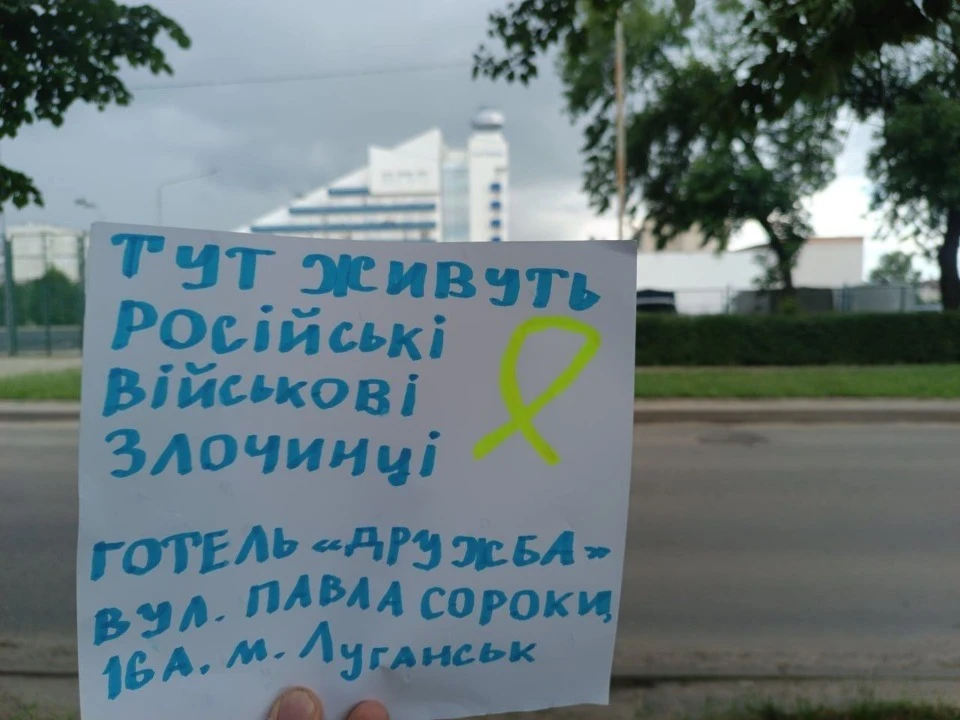 ТУТ ЖИВУТЬ
РОСІЙСЬКІ
ВІЙСЬКОВІ
ЗЛОЧИНЦІ
ГОТЕЛЬ «ДРУЖБА»
ВУЛ. ПАВЛА СОРОКИ,
16А. м. Луганськ